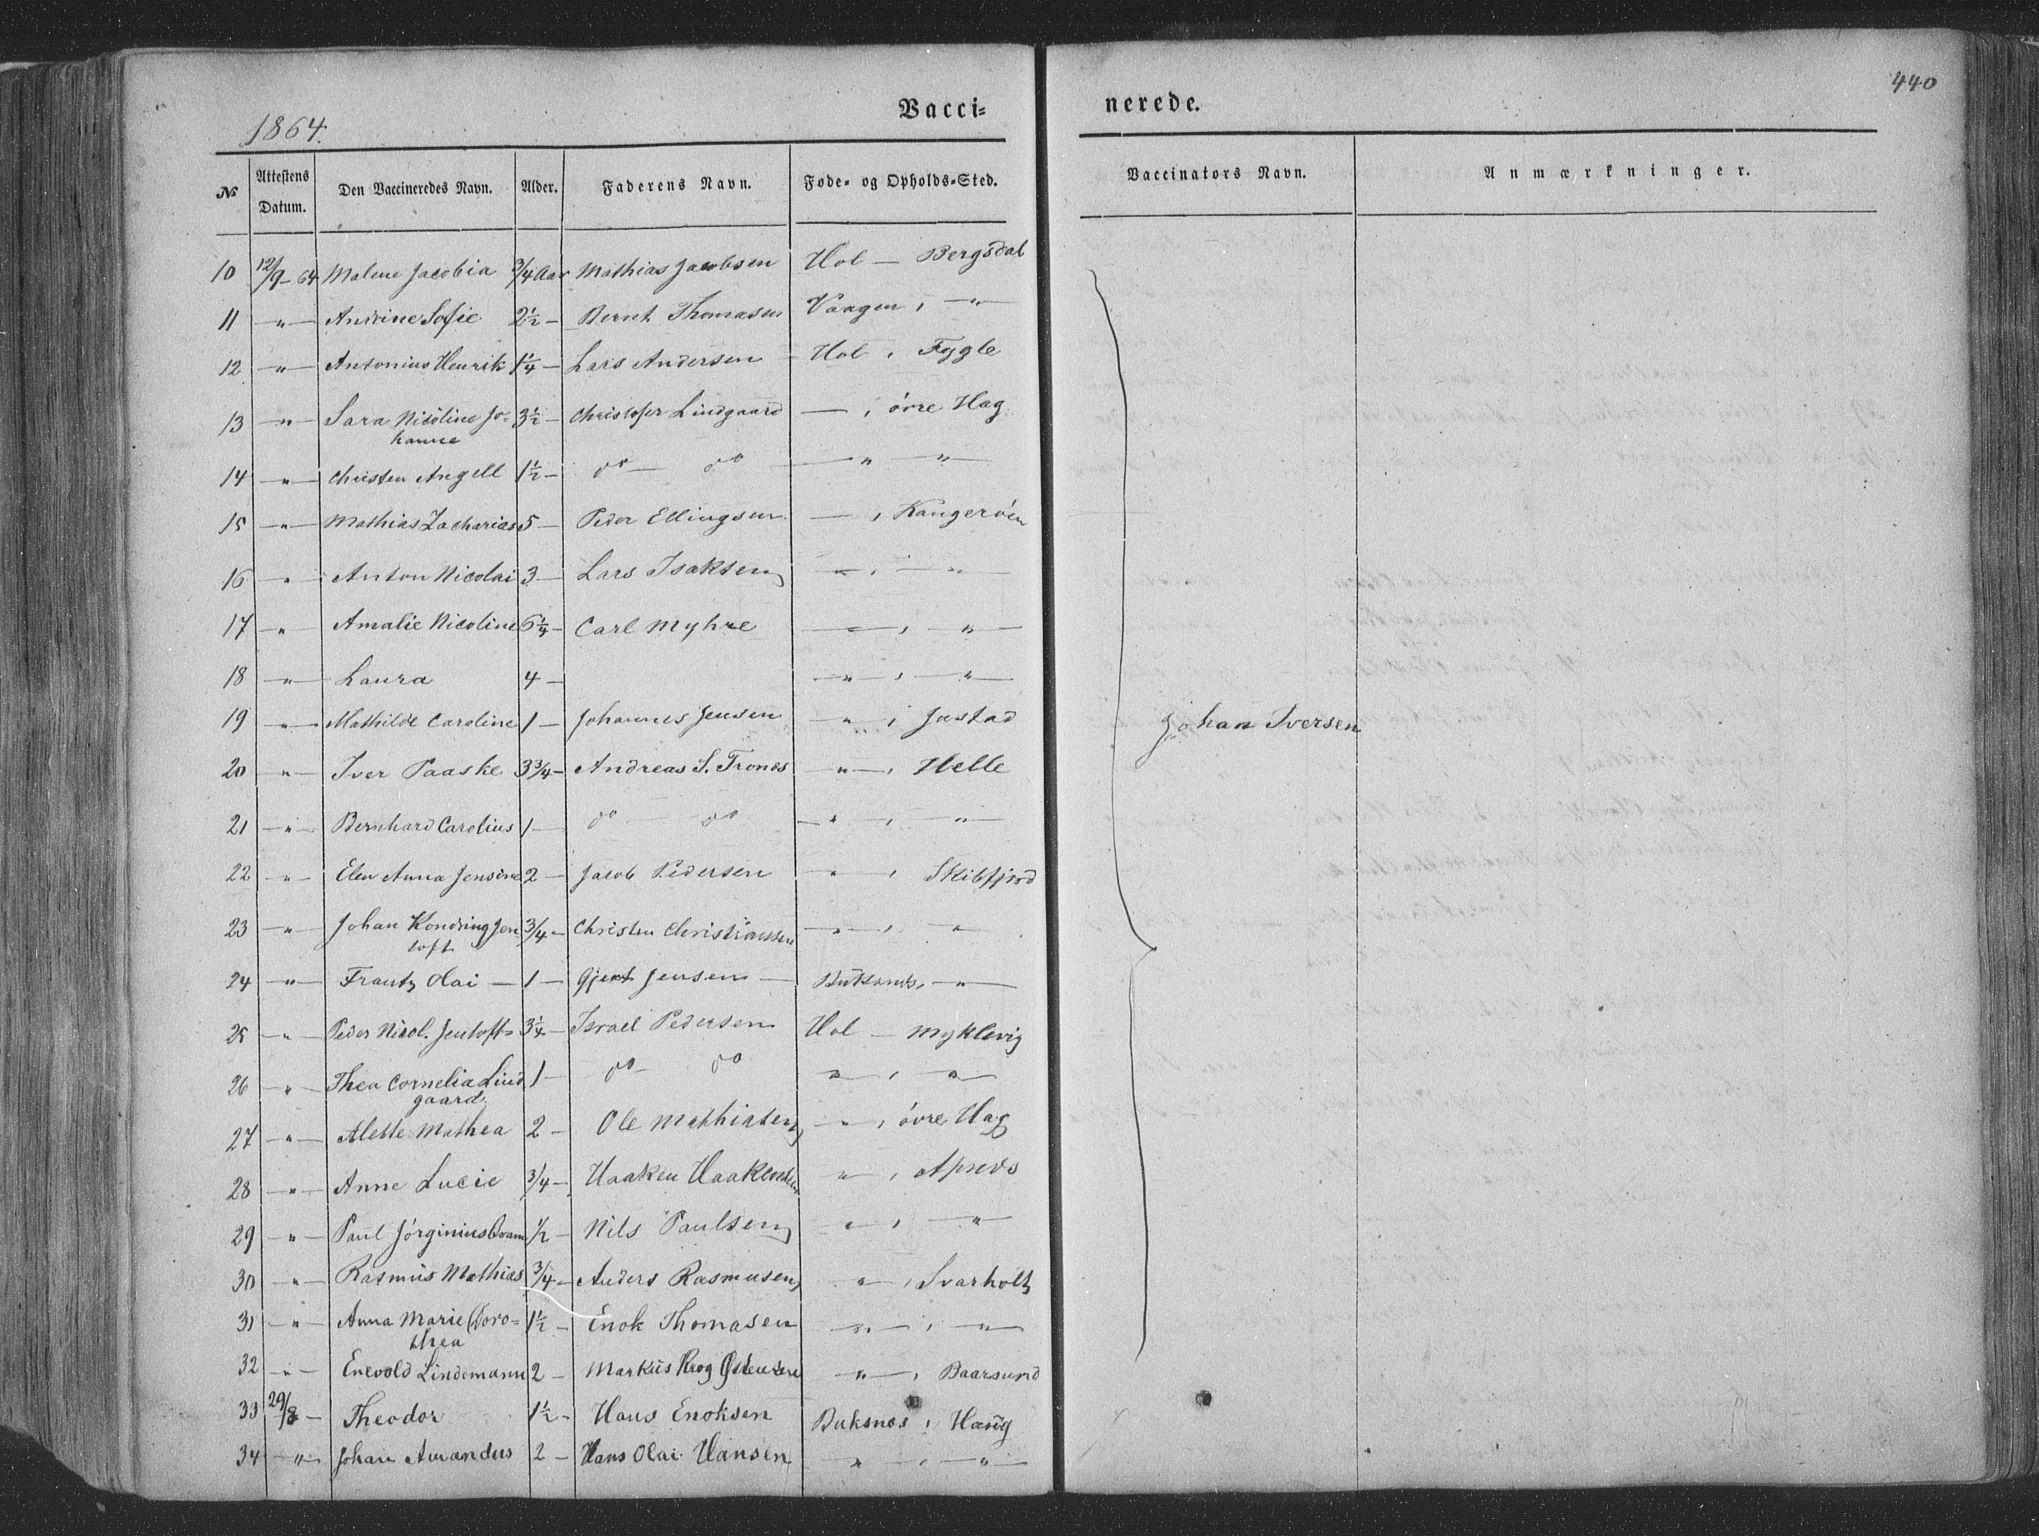 1864.
Vacci=
nerede.
440
No
Attestens Datum.
Den Vaccineredes Navn.
Alder.
Faderens Navn.
Føde- og Opholds-Sted.
Vaccinators Navn.
Anmærkninger.
10 12/9-64 Malene Jacobia 3/4 Aar Mathias Jacobsen Hol — Bergsdal
11 —"— Andrine Sofie 2 1/2 — Bernt Thomasen Vaagen, —"—
12 —"— Antonius Henrik 1 1/4 — Lars Andersen — Hol, Fygle
13 —"— Sara Nicoline Jo-
hanne 3 1/2 — Christofer Lindgaard —, øvre Hag
14 —"— Christen Angell 1 1/2 — do — do —"— "—
15 —"— Mathias Zacharias 5 — Peder Ellingsen —, Kangerøen
16 —"— Anton Nicolai 3 — Lars Isaksen —"—, —"—
17 —"— Amalie Nicoline 6 1/4 — Carl Myhre —"—, —"—
18 —"— Laura 4 — —"—, —"—
19 —"— Mathilde Caroline 1 — Johannes Jensen "—, Justad
20 —"— Iver Paaske 3 3/4 — Andreas S. Trones "—, Helle
21 —"— Bernhard Carolius 1 — do — do —"—, —"—
22 —"— Elen Anna Jensine 2 — Jacob Pedersen "—, Skibfjord
23 —"— Johan Kondring Jen
toft 3/4 — Christen Christianssen —"—, "—
24 —"— Frantz Olai — 1 — Gjert Jensen — Buksnæs, —"—
25 —"— Peder Nicol. Jentoft 3 1/4 — Israel Pedersen Hol — Myklevig
26 —"— Thea Cornelia Lind
gaard. 1 — do — do —"—, —"—
27 —"— Alette Mathea 2 — Ole Mathisen —"—, øvre Hag
28 —"— Anne Lucie 3/4 — Haaken Haakensen "—,
29 —"— Paul Jørginius 1/2 — Nils Paulsen —"—, —"—
30 —"— Rasmus Mathias 3/4 — Anders Rasmusen "—, Svarholt
31 —"— Anna Marie Doro-
thea 1 1/2 — Enok Thomasen —"—, —"—
32 —"— Enevold Lindemann 2 — Markus Krog Østensen —"—, Baarsund
33 29/8 — Theodor 1 1/2 — Hans Enoksen Buksnæs, Haug
34 —"— Johan Amandus 2 — Hans Olai Hansen —"—, —"—
Johan Iversen